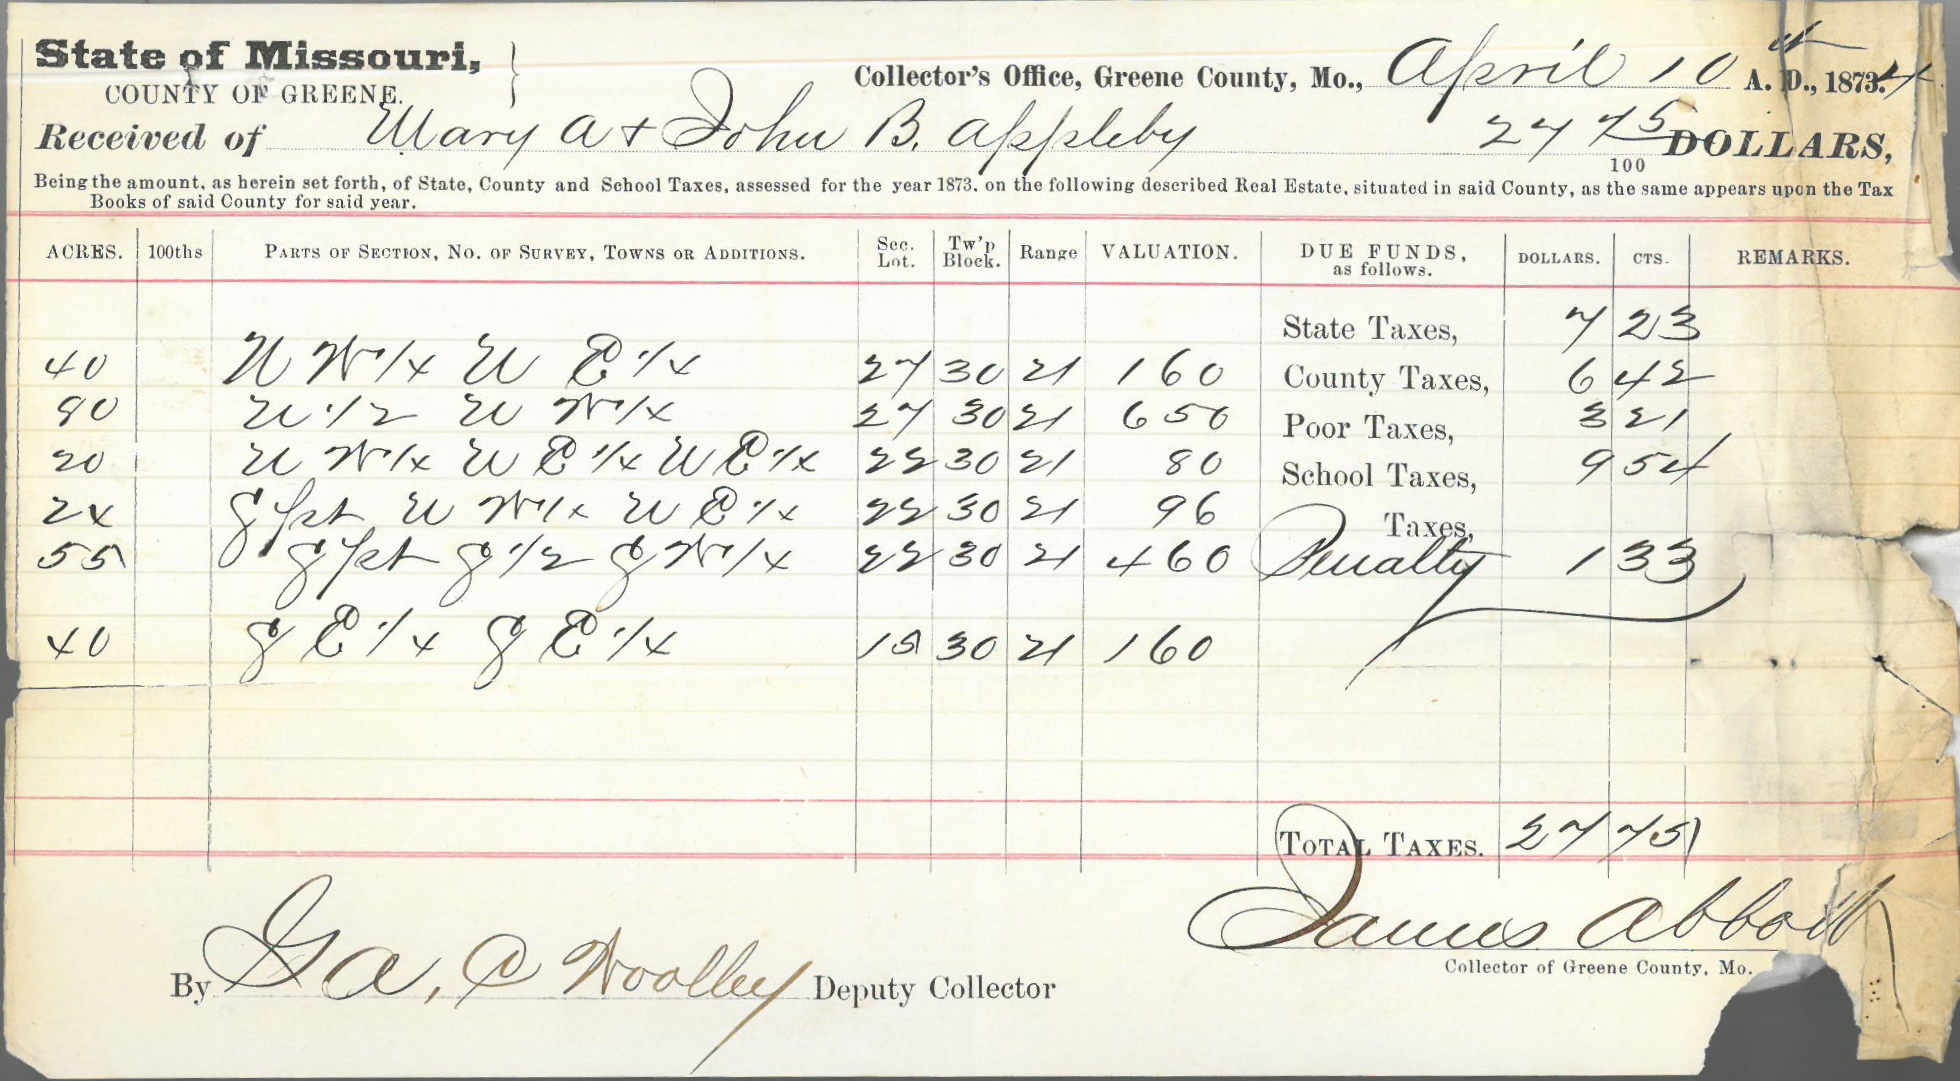 State of Missouri,
COUNTY OF GREENE.
Collector's Office, Greene County, Mo., April 10th A. D., 1873.4
Received of Mary A & John B. Appleby 27 75/100 DOLLARS,
Being the amount, as herein set forth, of State, County and School Taxes, assessed for the year 1873, on the following described Real Estate, situated in said County, as the same appears upon the Tax
Books of said County for said year.
ACRES. 100ths PARTS OF SECTION, NO. OF SURVEY, TOWNS OR ADDITIONS. Sec. Lot. Tw'p Block. Range VALUATION. DUE FUNDS, as follows. DOLLARS. CTS. REMARKS.
State Taxes, 7 23
40 N W 1/4 N E 1/4 27 30 21 160 County Taxes, 6 42
80 N 1/2 N W 1/4 27 30 21 650 Poor Taxes, 3 21
20 N W 1/4 N E 1/4 N E 1/4 22 30 21 80 School Taxes, 9 54
24 S pt N W 1/4 N E 1/4 22 30 21 96 Taxes,
55 S pt S 1/2 S W 1/4 22 30 21 460 Penalty 1 33
40 S E 1/4 S E 1/4 15 30 21 160
TOTAL TAXES. 27 75
James Abbott
Collector of Greene County, Mo.
By G A. C Woolley Deputy Collector